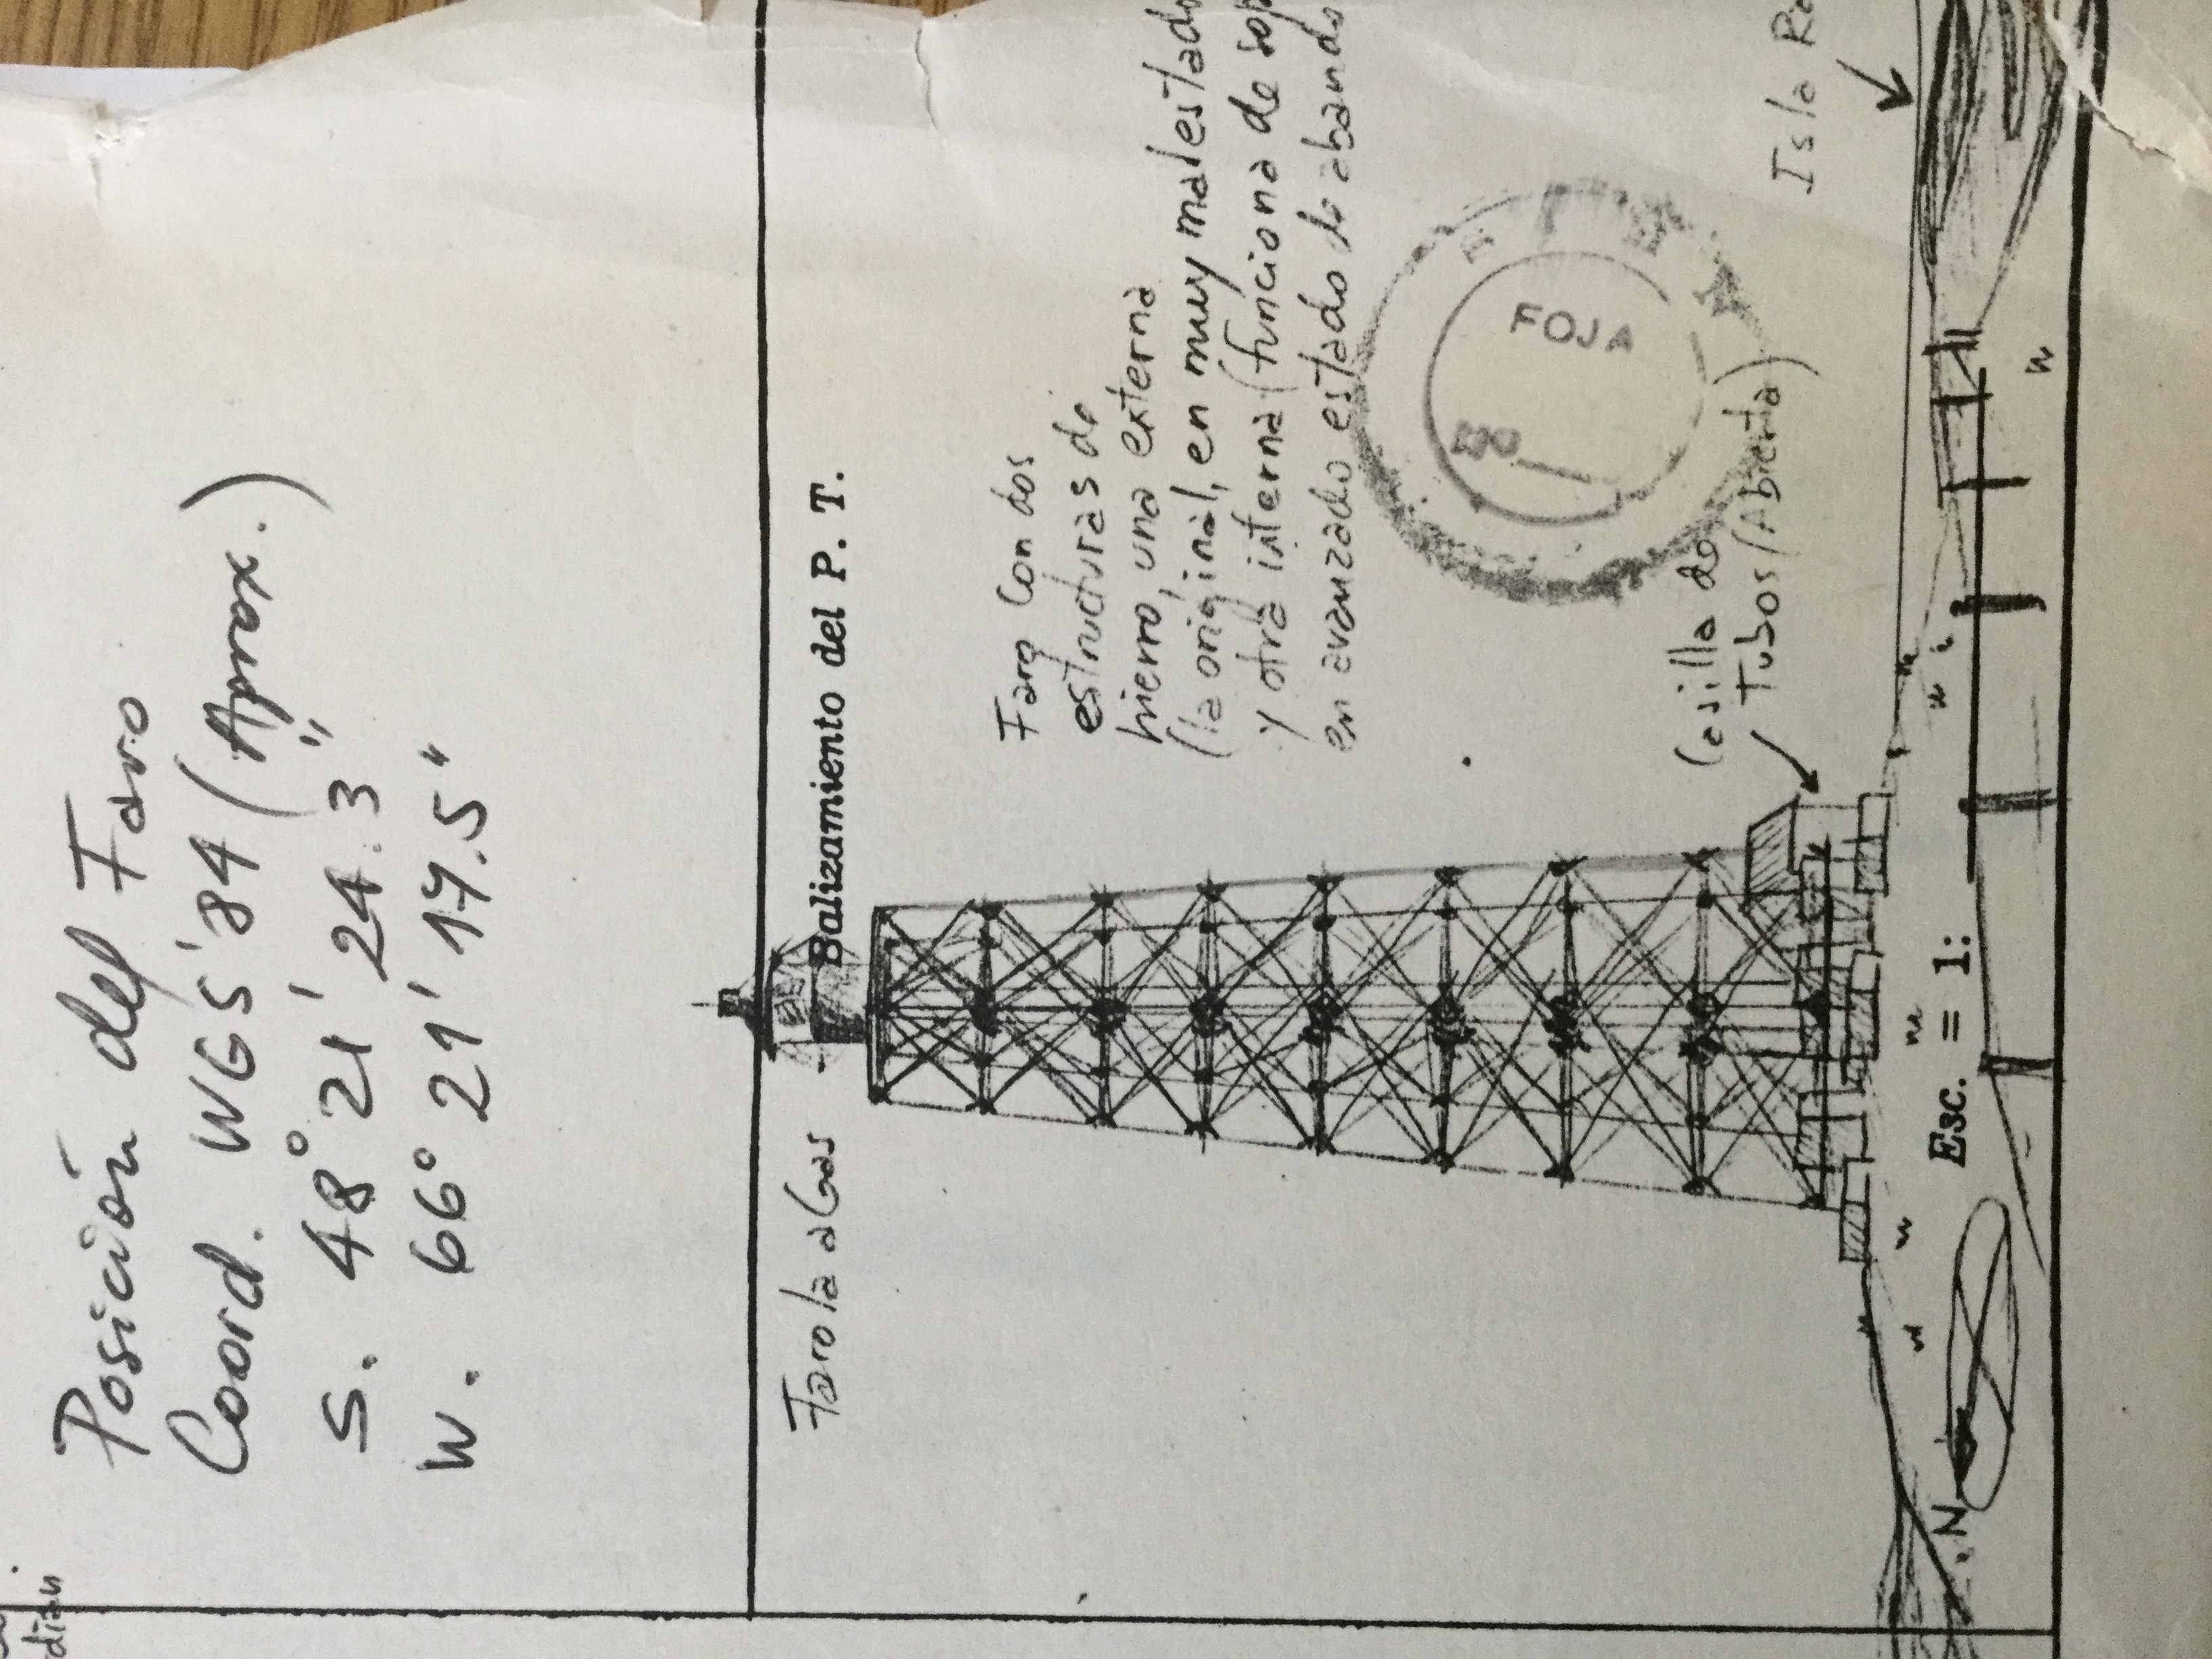 dian
Posición del Faro
Coord. WGS'84 (Aprox.)
S. 48° 21' 24.3"
W. 66° 21' 17.5"
Balizamiento del P. T.
Farola a Gas
Faro Con dos
estructuras de
hierro, una externa
(la original, en muy mal estado
y otra interna (funciona de sop
en avanzado estado de abando
FOJA
Casilla de
Tubos (Abierta)
Isla
Esc. = 1:
N